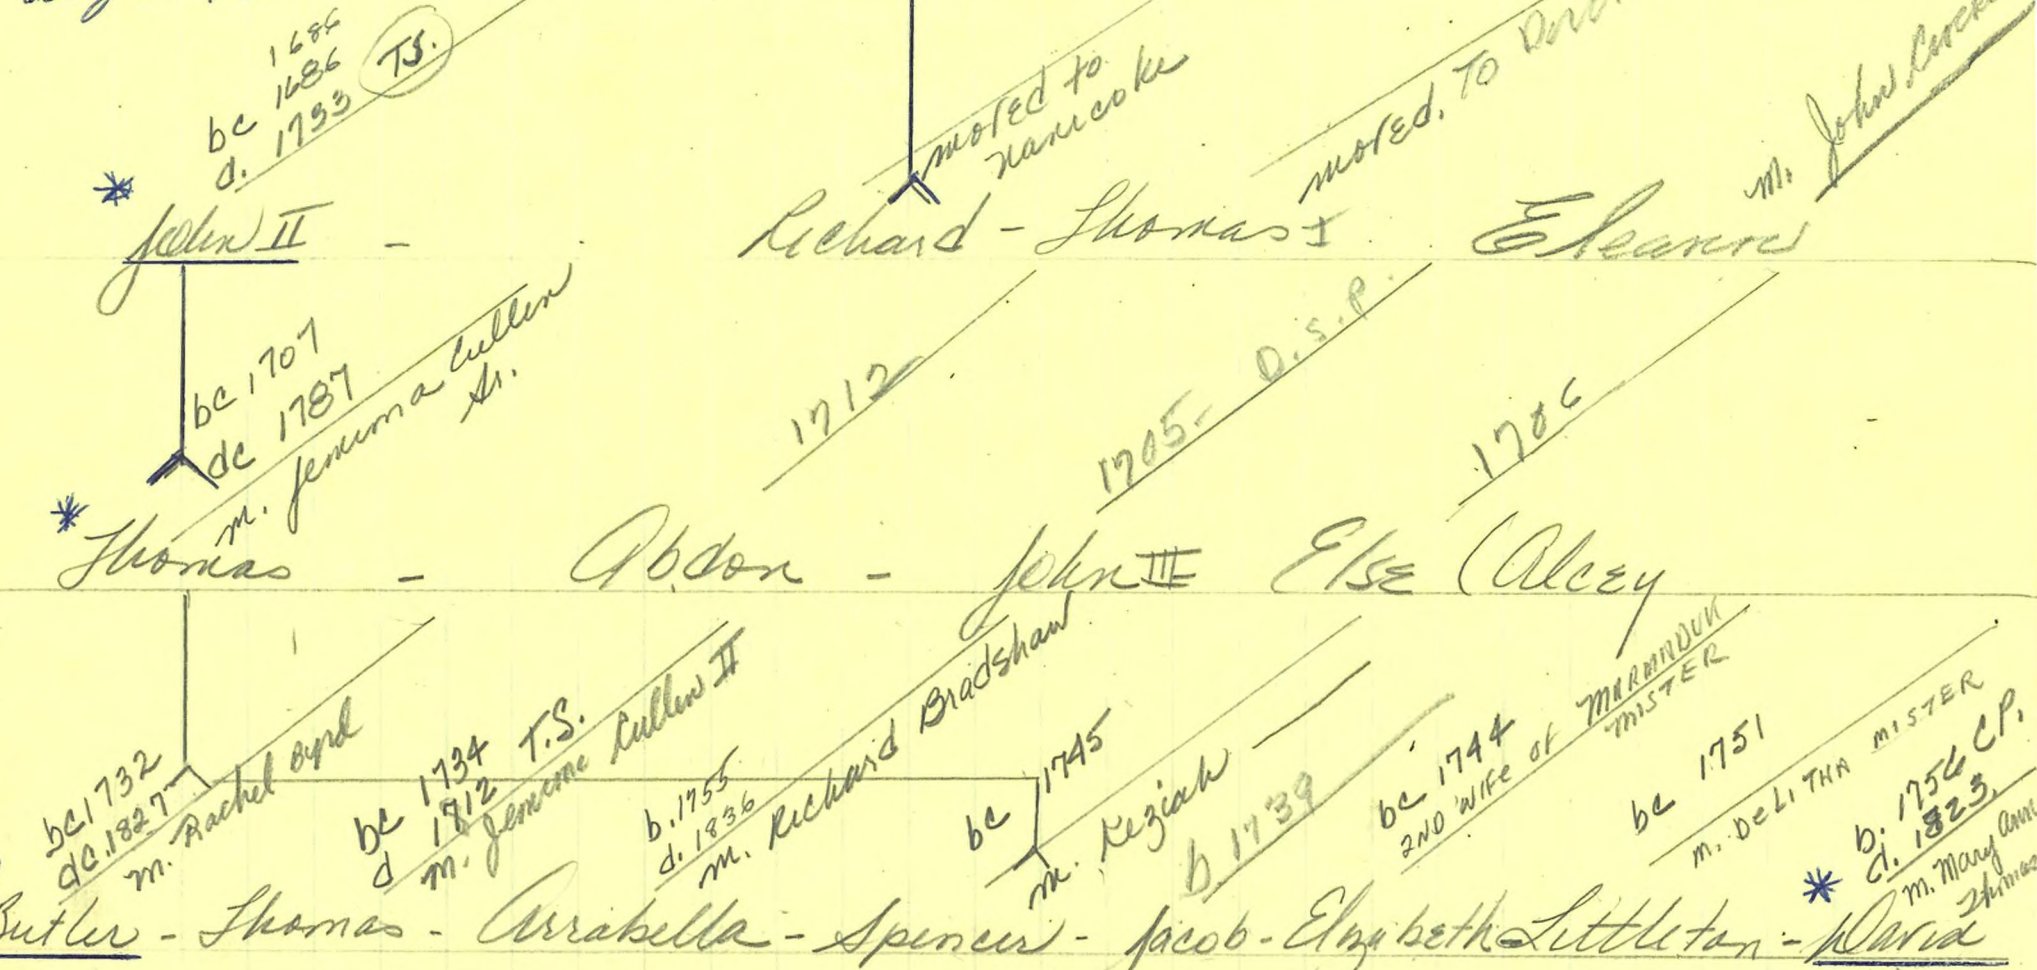 1686
bc 1686
d. 1733
T.S.
moved to
Nanicoke
moved. To
m. John
John II - Richard - Thomas I Eleann
bc 1707
dc 1787
m. Jemima Cullen
Sr.
1712
1705- D.S.P.
1706
Thomas - Abdon - John III Else (Alcey
bc 1732
dc. 1827
m. Rachel Byrd
bc 1734 T.S.
d 1812
m. Jemime Cullen II
b. 1755
d. 1836
m. Richard Bradshaw
bc 1745
m. Keziah —
b 1739
bc 1744
2ND WIFE OF MARMADUK
MISTER
bc 1751
m. DELITHA MISTER
b. 1756 CP.
d. 1823.
m. Mary Ann
Thomas
Butler - Thomas - Arrabella - Spencer - Jacob - Elizabeth - Littleton - David